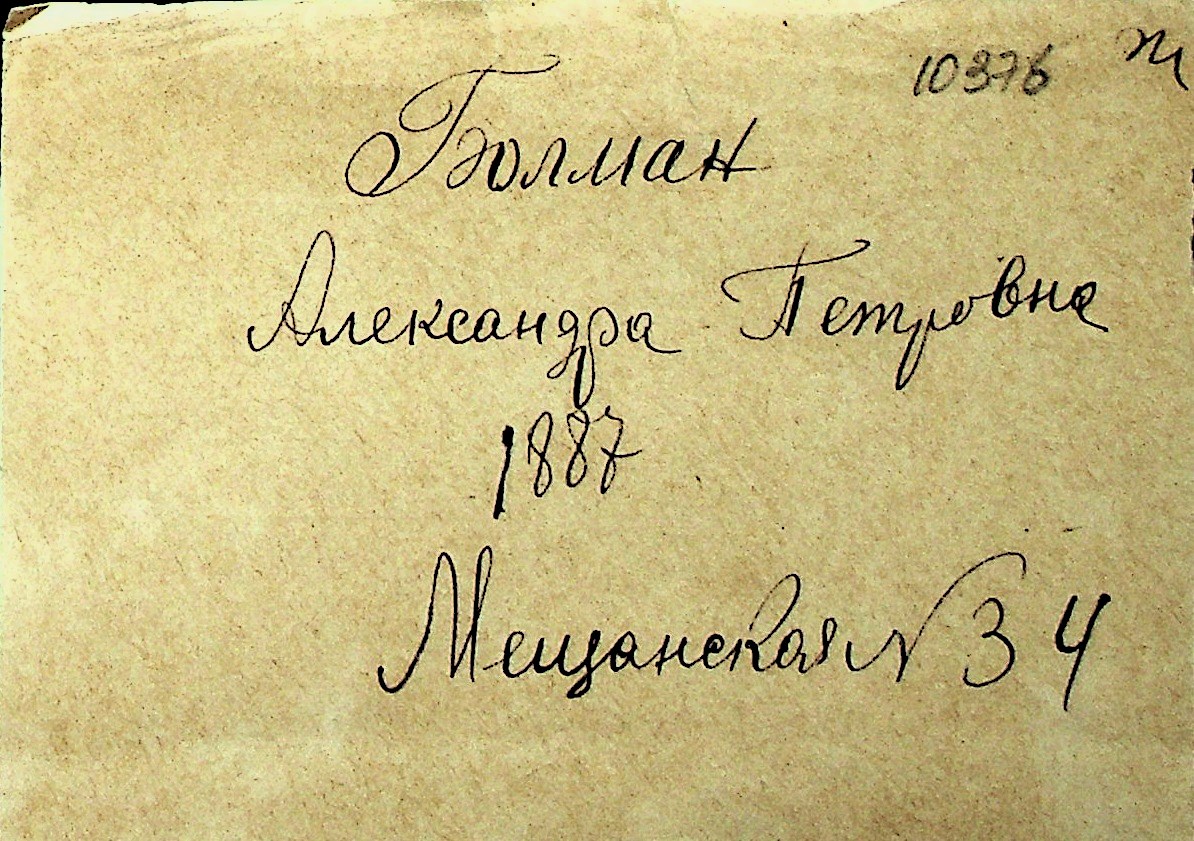 10376
Болман
Александра Петровна
1887
Мещанская N 34